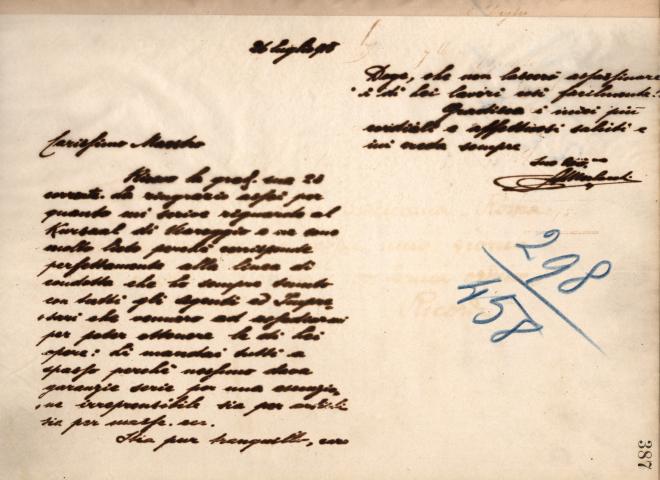 26 Luglio 918
Carissimo Maestro
Ricevo la grad. sua 23
corrente. La ringrazio assai per
quanto mi scrive riguardo al
Kursaal di Viareggio e ne sono
molto lieto perchè corrisponde
perfettamente alla linea di
condotta che ho sempre tenuto
con tutti gli agenti ed Impre-
sari che vennero ad
per poter ottenere le di lei
opere: li mandai tutti a
spasso perchè nessuno dava
garanzie serie per una esecuzio-
ne irreprensibile sia per artisti
sia per masse. ecc.
Stia pur tranquillo, caro
Doge, che non lascerò assassinare
i di lei lavori così facilmente!
Gradisca i miei più
cordiali e affettuosi saluti e
mi creda sempre
suo
298
458
387
Ricordi